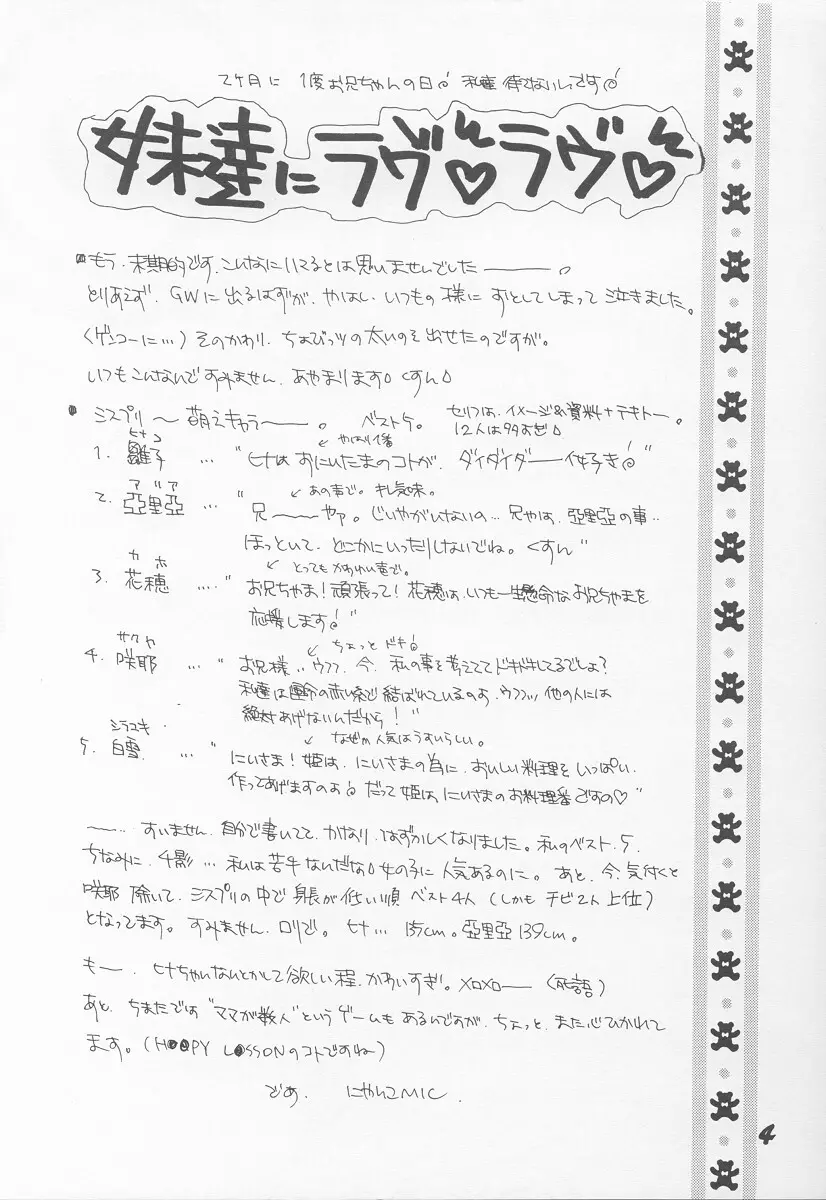 2ヶ月に 1度お兄ちゃんの日 私達 待てないんですの
妹達にラヴ♡ラヴ♡
もう、末期的です。こんなににてるとは思いませんでした———。
とりあえず、GWに出るはずが、やはし、いつもの様に おとしてしまって 泣きました。
(ゲンコーに…) そのかわり、ちょびっツの太いのを出せたのですが。
いつもこんなんですみません。あやまります。くすん。
シスプリ〜萌えキャラ———。 ベスト5。 セリフは、イメージ&資料+テキトー。
12人は多すぎ。
ヒナコ
やはり1番
1. 雛子 … "ヒナは おにいたまのコトが、ダイダイダ——イ好き"
アリア
あの声で。キレ気味。
2. 亞里亞 … "兄———やァ。じいやがいけないの… 兄やは、亞里亞の事‥
ほっといて、どこかにいったりしないでね。くすん"
カホ
とってもかわいい声で。
3. 花穂 …. "お兄ちゃま!頑張って!花穂は、いつも一生懸命なお兄ちゃまを
応援します"
サクヤ
ちょっと ドキ
4. 咲耶 … "お兄様‥ウフフ、今、私の事を考えててドキドキしてるでしょ?
私達は運命の赤い糸で 結ばれているのよ、ウフフッ、他の人には
絶対あげないんだから!"
シラユキ
なぜか人気はうすいらしい。
5. 白雪 … "にいさま!姫は、にいさまの為に、おいしい料理を いっぱい、
作ってあげますのよ だって姫は、にいさまのお料理番ですの♡"
——… すいません、自分で書いてて、かなり、はずかしくなりました。私のベスト、5。
ちなみに、千影… 私は苦手なんだな。女の子に人気あるのに。あと、今、気付くと
咲耶 除いて、シスプリの中で 身長が低い順 ベスト4人 (しかも チビ2人 上位)
となってます。すみません、ロリで。ヒナ… 135cm。亞里亞139cm。
もー、ヒナちゃいないとかして欲しい程、かわいすぎ。メロメロ—— (死語)
あと、ちまたでは "ママが数人"というゲームも あるんですが、ちょっと、また心ひかれて
ます。(H●●PY L●SSONのコトですね)
であ、 にゃんこMIC.
4